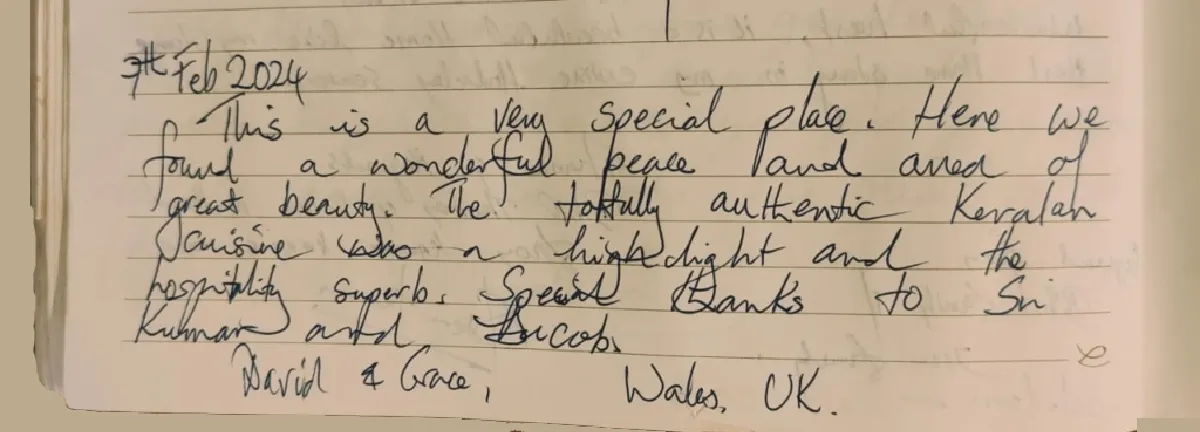 7th Feb 2024
This is a very special place. Here we
found a wonderful peace and area of
great beauty. The totfully authentic Keralan
cuisine was a highlight and the
hospitality superb. Special thanks to Sri
Kumar and Jacob.
David & Grace, Wales, UK.